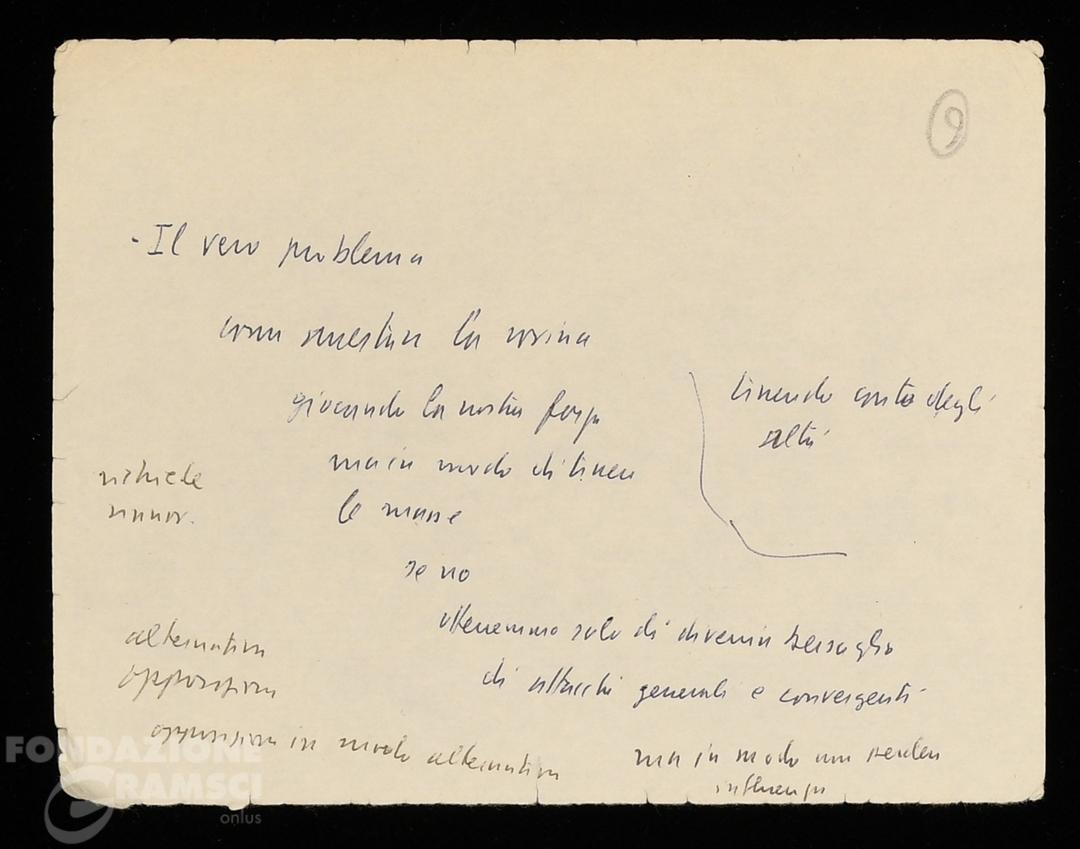 9
- Il vero problema
come arrestare la rovina
giocando la nostra forza
ma in modo di tenere
le masse
se no
otteremmo solo di divenire bersaglio
di attacchi generali e convergenti
ma in modo non perdere
influenza
tenendo conto degli
altri
richieste
alternativa
opposizione
opposizione in modo alternativo
FONDAZIONE
GRAMSCI
onlus